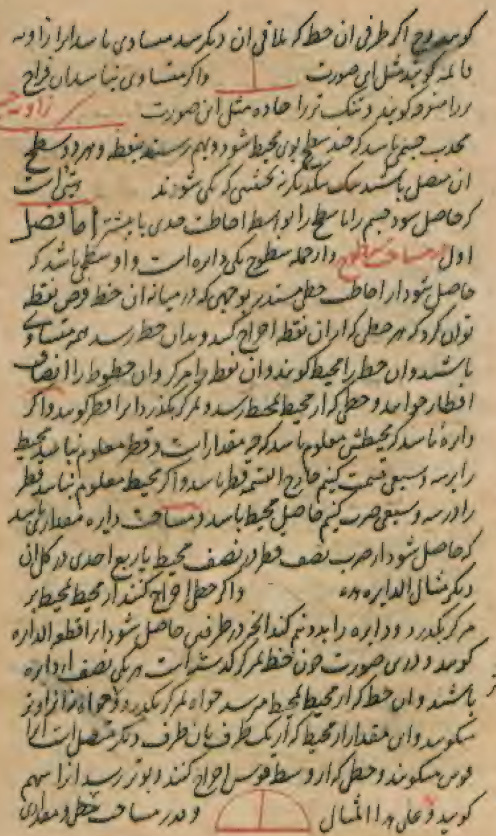 کویند رح اکر طرفی ان خط که ملاقی ان دیکر سد متساوی باسد انرا زاویه
قایمه کویند مثل این صورت واکر متساوی نباسد ان فراخ
را منفرجه کویند و تنک تر را حاده مثل این صورت زاویه
محدب جسمی باسد که چند سطح بوی محیط شود و بهم رسند بنقطه و هر دو سطح
ان متصل باشند بیک دیکر نه بحیثیتی که یکی شوند هیئتی است
که حاصل سود جسم را با سطح را بواسطه احاطت حدی یا بیشتر اما فصل
اول در مساحت سطوح و از جمله سطوح یکی دایره است و او سطحی باشد که
حاصل شود از احاطت خطی مستدیر بوجهی که در میانه ان خط فرض نقطه
توان کرد که هر خطی که از ان نقطه اخراج کنند و بدان خط رسد هم متساوی
باشند و ان خط را محیط کویند و ان نقطه را مرکز و ان خطوط را انصاف
اقطار خوانند و خطی که از محیط بمحیط رسد و بمرکز بکذرد انرا قطر کویند و اکر
دایرهٔ باسد که محیطش معلوم باسد که چه مقدار است و قطر معلوم نباسد محیط
را بر سه و سبعی قسمت کنیم خارج القسمه قطر باسد و اکر محیط معلوم نباسد قطر
را در سه و سبعی ضرب کنیم حاصل محیط باسد و مساحت دایره مقداری باسد
که حاصل شود از ضرب نصف قطر در نصف محیط یا ربع احدی در کل ان
دیکر مثال الدایره هذه واکر خطی اخراج کنند از محیط بمحیط بر
مرکز بکذرد و دایره را بدو نیم کند انچه در طرفین حاصل شود انرا قطع الدایره
کویند و درین صورت چون خط بمرکز کذشته است هر یکی نصف از دایره
باشند و ان خط که از محیط بمحیط میرسد خواه بمرکز بکذرد و خواه نه انرا وتر
میکویند و ان مقدار از محیط که از یک طرف بان طرف دیکر متصل است انرا
قوس میکویند و خطی که از وسط قوس اخراج کنند و بوتر رسد انرا سهم
کویند و علی هذا المثال و قدر مساحت خطی و مقداری